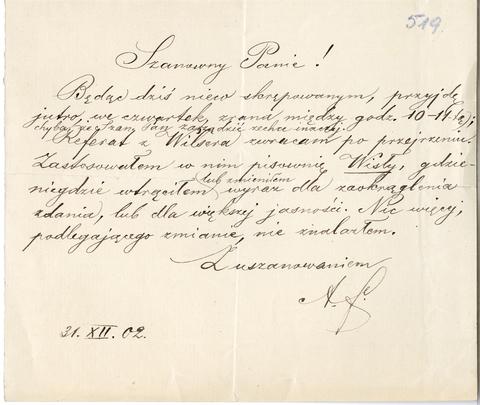 519.
Szanowny Panie!
Będąc dziś nieco skrępowanym, przyjdę
jutro, we czwartek, zrana między godz. 10-11
chyba, że Szan. Pan zarządzić zechce inaczej.
Referat z Wilsera zwracam po przejrzeniu.
Zastosowałem w nim pisownię Wisły, gdzie-
lub zmieniłem
niegdzie wtrąciłem wyraz dla zaokrąglenia
zdania, lub dla większej jasności. Nic więcej,
podlegającego zmianie, nie znalazłem.
Z uszanowaniem
31. XII. 02.